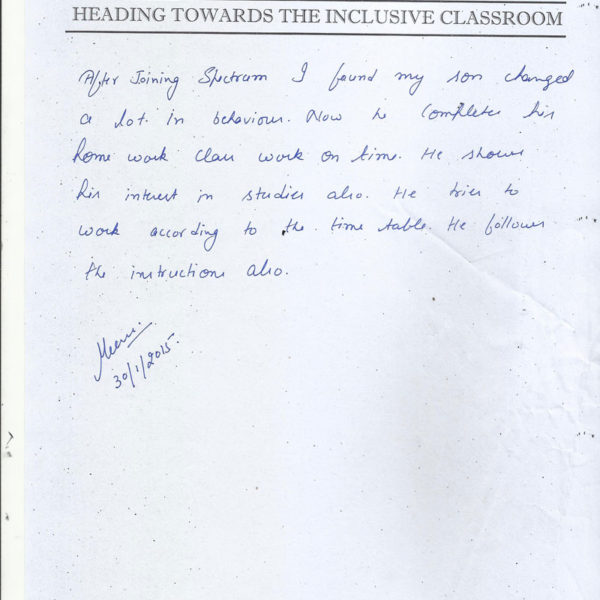 HEADING TOWARDS THE INCLUSIVE CLASSROOM
After Joining Spectrum I found my son changed
a lot. in behaviour. Now he completes his
home work class work on time. He shows
his interest in studies also. He tries to
work according to the time table. He follows
the instructions also.
30/1/2015.